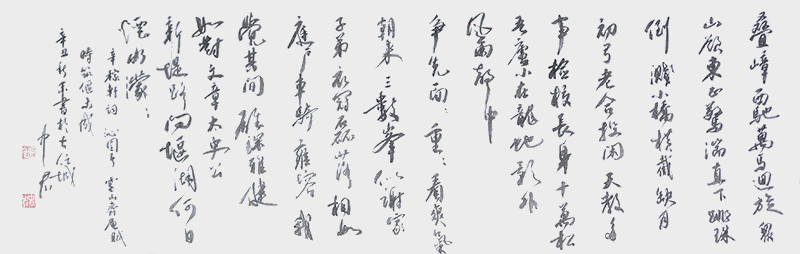 疊嶂西馳萬馬迴旋衆
山欲東正驚湍直下跳珠
倒濺小橋橫截缺月
初弓老合投閑天教多
事檢校長身十萬松
吾廬小在龍蛇影外
風雨聲中
爭先面〻重〻看爽氣
朝來三數峯似謝家
子弟衣冠磊落相如
庭户車騎雍容我
覺其间雄深雅健
如對文章太史公
新堤路问堰湖何日
煙水濛〻
辛稼軒詞 沁園春 靈山齊庵賦
時築偃湖未成
辛丑秋